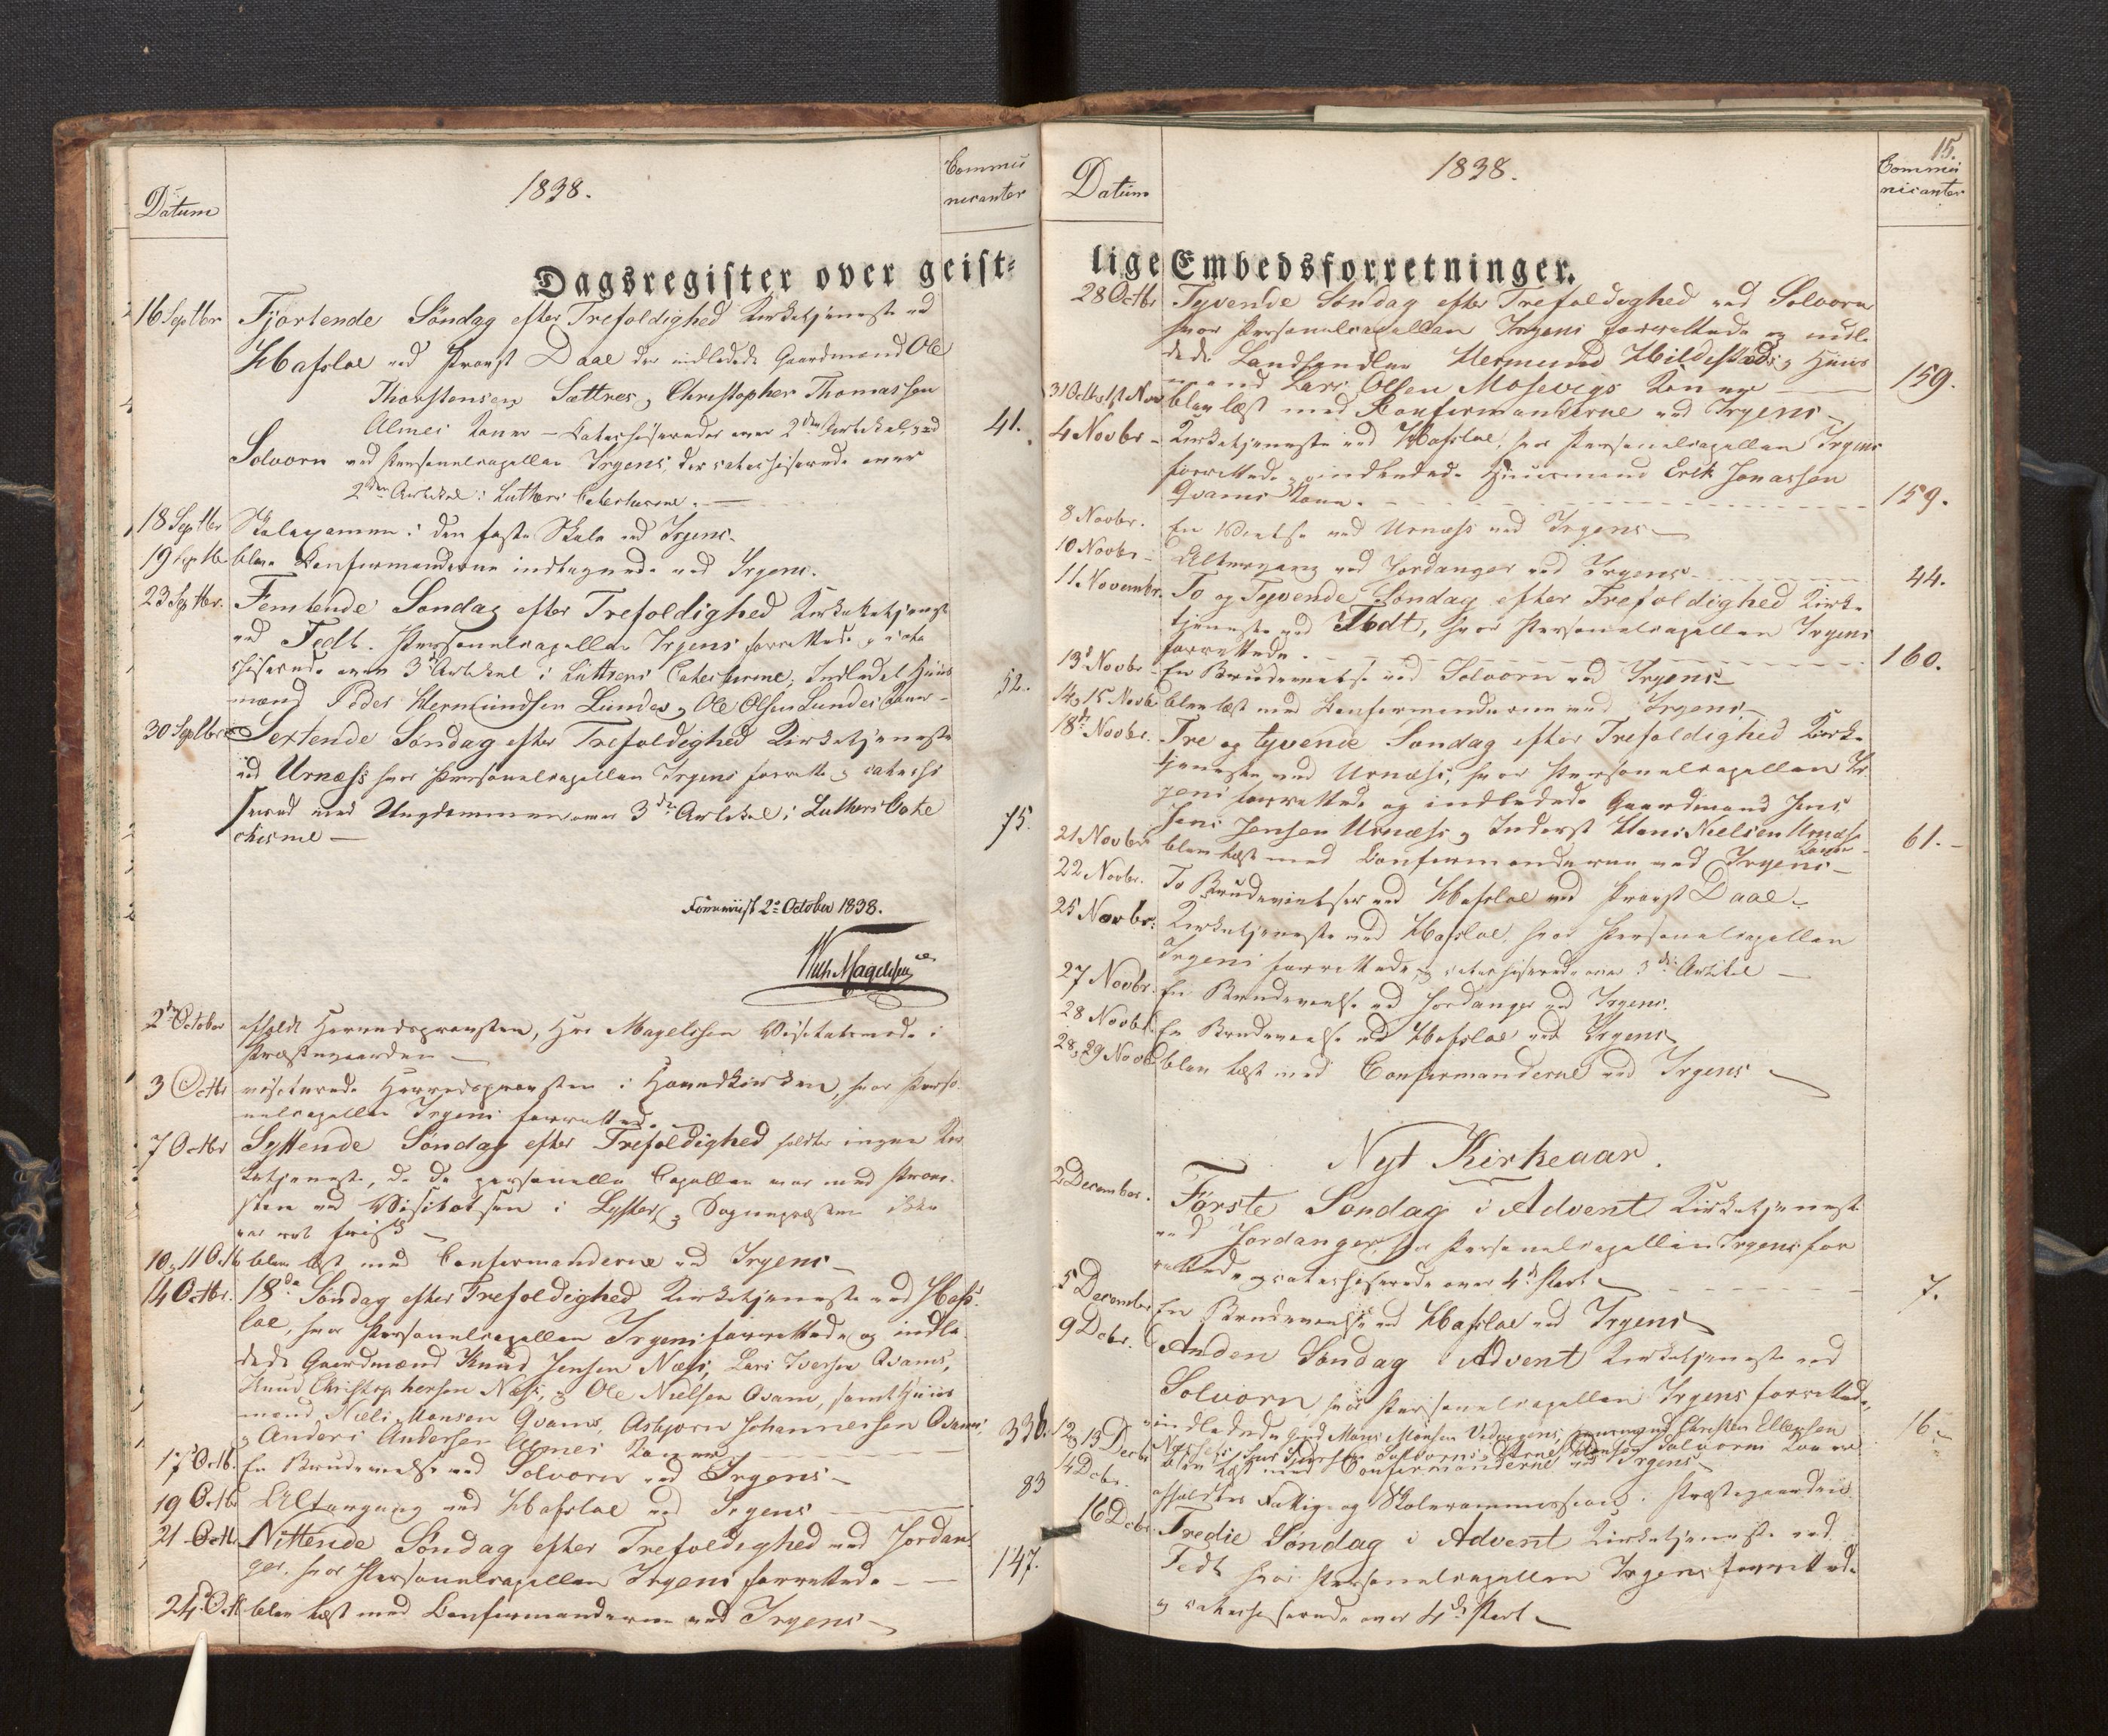 Datum
1838.
Commu
nicanter
Dagsregister over geist-
16 Septbr Fjortende Søndag efter Trefoldighed Kirketjeneste ved
Hafsloe ved Provst Daae der indledede Gaardmand Ole
Thorstensen Sættres og Christopher Thomassen
Almes Koner - Catechiserede over 2den Artikel, ved 41.
Solvorn ved Personelcapellan Irgens, der catechiserede over
2den Artikel i Luthers Catechisme. —
18 Septbr Skoleexamen i den faste Skole ved Irgens.
19 Septb bleve Confirmanderne indtegnede ved Irgens.
23 Septbr. Femtende Søndag efter Trefoldighed Kirketjeneste
ved Fedt. Personelcapellan Irgens forrettede og cate
chiserede over 3d Artikel i Luthers Catechisme; Indledet Huus
mænd Peder Hermundsen Lundes og Ole Olsen Lundes Koner - 52.
30 Septbr Sextende Søndag efter Trefoldighed Kirketjeneste
ved Urnæss hvor Personelcapellan Irgens forrette og catechi
serede med Ungdommen over 3die Artikel i Luthers Cate 75.
chisme —
2 October 1838.
Wilh Magelssen
2den October afholdt Herredsprovsten, Hr Magelssen Visitatsmøde i
Præstegaarden —
3 Octbr visiterede Herredsprovsten i Hovedkirken, hvor Perso
nelcapellan Irgens forrettede.
7 Octbr Syttende Søndag efter Trefoldighed holdtes ingen Kir
ketjeneste, da den personelle Capellan var med Prov-
sten ved Visitatsen i Lyster og Sognepræsten ikke
var ret frisk —
10, 11 Octb bleve læst med Confirmanderne ved Irgens —
14 Octbr. 18de Søndag efter Trefoldighed Kirketjeneste ved Hafs
loe, hvor Personelcapellan Irgens forrettede og indle
dede Gaardmænd Knud Jensen Næss, Lars Iversen Qvams,
Knud Christophersen Næss, og Ole Nielsen Qvams, samt Huus
mænd Niels Monsen Qvams, Asbjørn Johannessen Qvams,
og Anders Andersen Almes Koner 336.
17 Octb. En Brudevielse ved Solvorn ved Irgens —
19 Octbr Altergang ved Hafsloe ved Irgens 83
21 Octb. Nittende Søndag efter Trefoldighed ved Jordan
ger, hvor Personelcapellan Irgens forrettede — 147.
24 Octb bleve læst med Confirmanderne ved Irgens —
Datum
1838.
15.
Commu
nicanter
lige Embedsforretninger.
28 Octbr Tyvende Søndag efter Trefoldighed ved Solvorn
hvor Personelcapellan Irgens forrettede og indle
dede Landhandler Hermund Hildestads og Huus
mand Lars Olsen Mosevigs Koner 159.
31 Octbr 1st Nov bleve læst med Konfirmanderne ved Irgens —
4 Novbr - Kirketjeneste ved Hafsloe, hvor Personelcapellan Irgens
forrettede og indledede Huusmand Erik Jonassen
Qvams Kone. 159.
8 Novbr. En Vielse ved Urnæss ved Irgens —
10 Novbr - Altergang ved Jordanger ved Irgens 44.
11 Novembr. To og Tyvende Søndag efter Trefoldighed Kirke
tjeneste ved Fedt, hvor Personelcapellan Irgens
forrettede. 160.
13d Novbr En Brudevielse ved Solvorn ved Irgens —
14, 15 Novb bleve læst med Confirmanderne ved Irgens —
18de Novbr. Tre og tyvende Søndag efter Trefoldighed Kirke
tjeneste ved Urnæss, hvor Personelcapellan Ir
gens forrettede og indledede Gaardmand Jens
Jens Jensen Urnæss og Inderst Hans Nielsen Urnæss
Koner 61. -
21 Novbr bleve læst med Confirmanderne ved Irgens —
22 Novbr. To Brudevielser ved Hafsloe ved Provst Daae —
25 Novbr: Kirketjeneste ved Hafsloe, hvor Personelcapellan
Irgens forrettede og catechiserede over 3die Artikel —
27 Novbr. En Brudevielse ved Jordanger ved Irgens.
28 Novbr. En Brudevielse ved Hafsloe ved Irgens
28, 29 Novb bleve læst med Confirmanderne ved Irgens —
Nyt Kirkeaar.
2 December. Første Søndag i Advent Kirketjeneste
ved Jordanger, hvor Personelcapellan Irgens for
rettede og catechiserede over 4d Part — 7.
5 December En Brudevielse ved Hafsloe ved Irgens
9 Dcbr. Anden Søndag i Advent Kirketjeneste ved
Solvorn hvor Personelcapellan Irgens forrettede,
indledede Gmd Mons Monsen Christen Ellingsen 16. -
Solvorns Koner
12, 13 Decbr bleve læst med Confirmanderne ved Irgens
14 Dcbr. afholdtes Fattig- og Skolecommission i Præstegaarden
16 Dcbr Tredie Søndag i Advent Kirketjeneste ved
Fedt hvor Personelcapellan Irgens forrettede
og catechiserede over 4de Part —